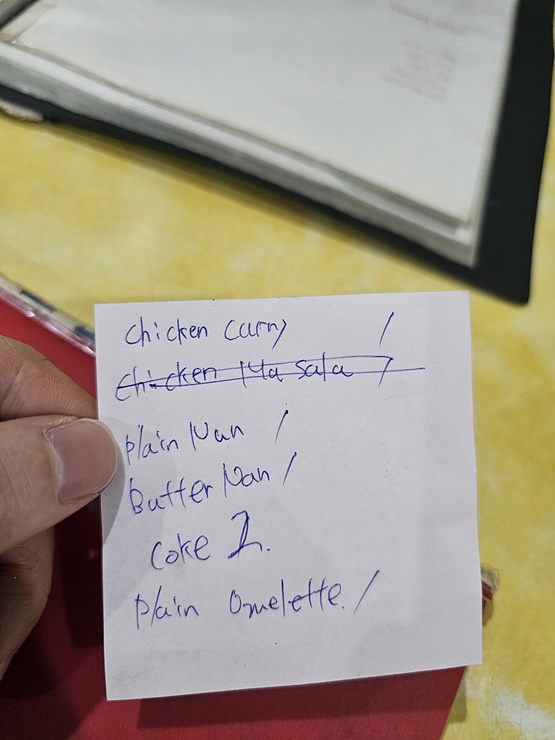 Chicken Curry /
Chicken Masala /
Plain Nan /
Butter Nan /
Coke 2.
Plain Omelette. /